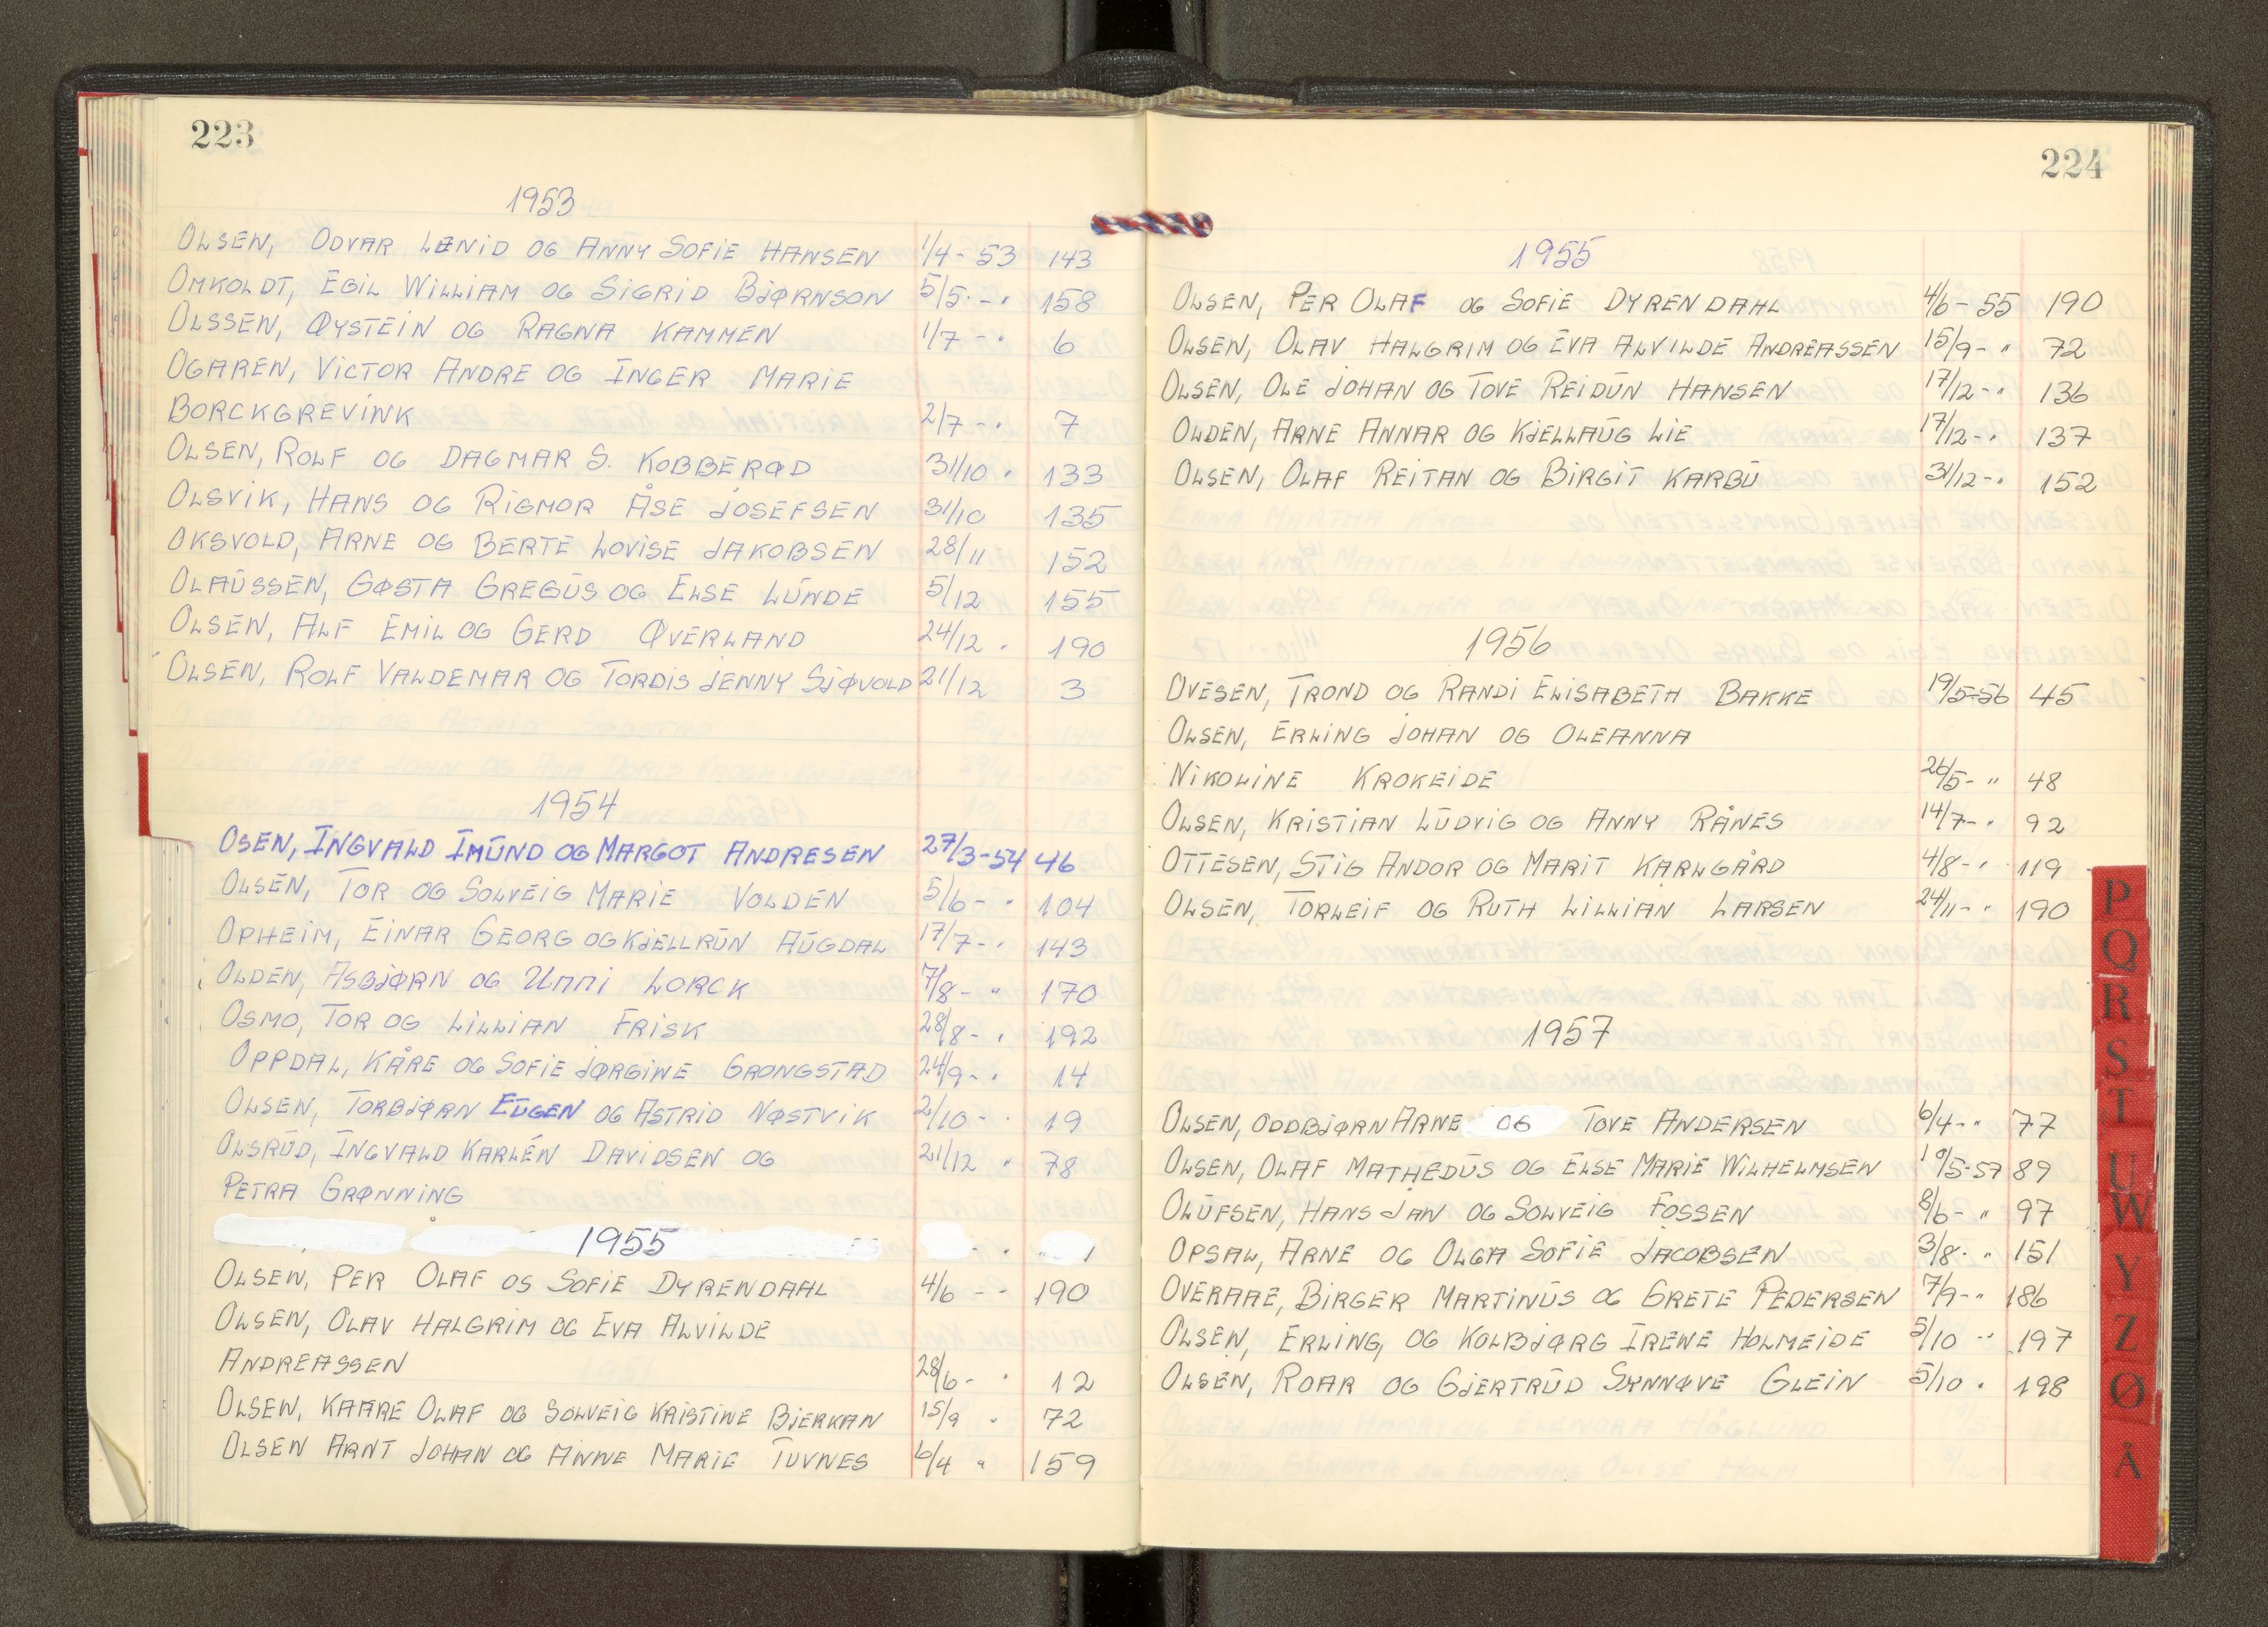 223
1953
OLSEN, ODVAR LENID OG ANNY SOFIE HANSEN 1/4 - 53 143
OMKOLDT, EGIL WILLIAM OG SIGRID BJØRNSON 5/5 - " 158
OLSSEN, ØYSTEIN OG RAGNA KAMMEN 1/7 - " 6
OGAREN, VICTOR ANDRE OG INGER MARIE
BORCKGREVINK 2/7 - " 7
OLSEN, ROLF OG DAGMAR S. KOBBERØD 31/10 " 133
OLSVIK, HANS OG RIGMOR ÅSE JOSEFSEN 31/10 135
OKSVOLD, ARNE OG BERTE LOVISE JAKOBSEN 28/11 152
OLAUSSEN, GØSTA GREGUS OG ELSE LUNDE 5/12 155
OLSEN, ALF EMIL OG GERD ØVERLAND 24/12 " 190
OLSEN, ROLF VALDEMAR OG TORDIS JENNY SJØVOLD 21/12 3
1954
OSEN, INGVALD IMUND OG MARGOT ANDRESEN 27/3-54 46
OLSEN, TOR OG SOLVEIG MARIE VOLDEN 5/6 - " 104
OPHEIM, EINAR GEORG OG KJELLRUN AUGDAL 17/7 - " 143
OLDEN, ASBJØRN OG UNNI LORCK 7/8 - " 170
OSMO, TOR OG LILLIAN FRISK 28/8 - " 192
OPPDAL, KÅRE OG SOFIE JØRGINE GRONGSTAD 24/9 - " 14
OLSEN, TORBJØRN EUGEN OG ASTRID NØSTVIK 2/10 - " 19
OLSRUD, INGVALD KARLÉN DAVIDSEN OG 21/12 " 78
PETRA GRØNNING
1955
OLSEN, PER OLAF OG SOFIE DYRENDAHL 4/6 - - 190
OLSEN, OLAV HALGRIM OG EVA ALVILDE
ANDREASSEN 28/6 - " 12
OLSEN, KAARE OLAF OG SOLVEIG KRISTINE BJERKAN 15/9 " 72
OLSEN ARNT JOHAN OG ANNE MARIE TUVNES 6/4 " 159
224
1955
OLSEN, PER OLAF OG SOFIE DYRENDAHL 4/6 - 55 190
OLSEN, OLAV HALGRIM OG EVA ALVILDE ANDREASSEN 15/9 - " 72
OLSEN, OLE JOHAN OG TOVE REIDUN HANSEN 17/12 - " 136
OLDEN, ARNE ANNAR OG KJELLAUG LIE 17/12 - " 137
OLSEN, OLAF REITAN OG BIRGIT KARBU 31/12 - " 152
1956
OVESEN, TROND OG RANDI ELISABETH BAKKE 19/5-56 45
OLSEN, ERLING JOHAN OG OLEANNA
NIKOLINE KROKEIDE 26/5 - " 48
OLSEN, KRISTIAN LUDVIG OG ANNY RÅNES 14/7 - " 92
OTTESEN, STIG ANDOR OG MARIT KARLGÅRD 4/8 - " 119
OLSEN, TORLEIF OG RUTH LILLIAN LARSEN 24/11 - " 190
1957
OLSEN, ODDBJØRN ARNE OG TOVE ANDERSEN 6/4 - " 77
OLSEN, OLAF MATHEDUS OG ELSE MARIE WILHELMSEN 10/5-57 89
OLUFSEN, HANS JAN OG SOLVEIG FOSSEN 8/6 - " 97
OPSAL, ARNE OG OLGA SOFIE JACOBSEN 3/8 - " 151
OVERAAE, BIRGER MARTINUS OG GRETE PEDERSEN 7/9 - " 186
OLSEN, ERLING, OG KOLBJØRG IRENE HOLMEIDE 5/10 - " 197
OLSEN, ROAR OG GJERTRUD SYNNØVE GLEIN 5/10 " 198
P
Q
R
S
T
U
W
Y
Z
Ø
Å